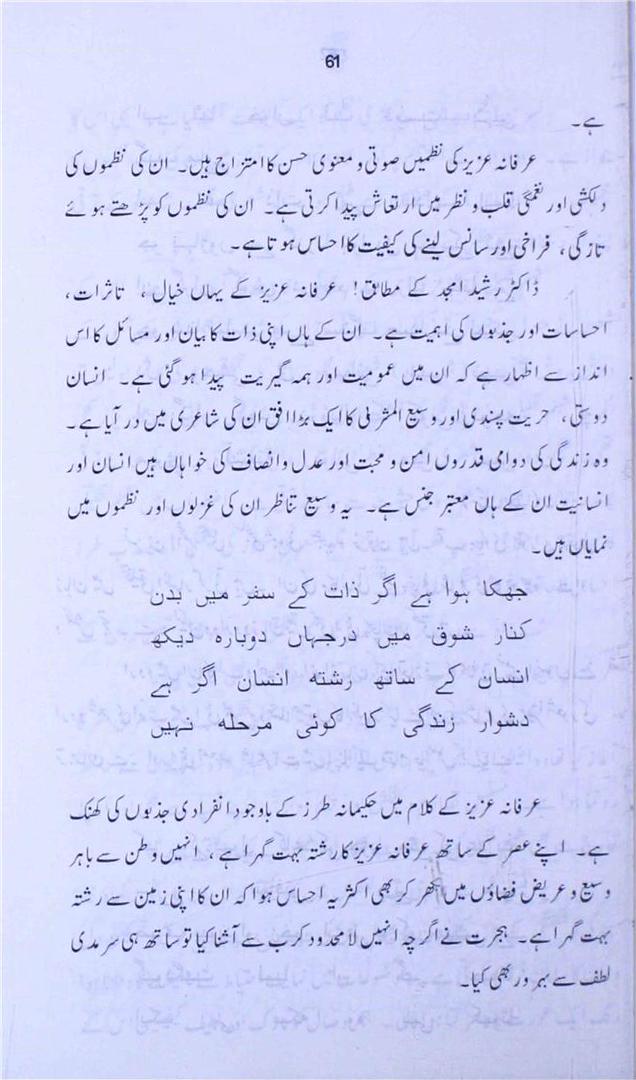 61
ہے۔
عرفانہ عزیز کی نظمیں صوتی و معنوی حسن کا امتزاج ہیں۔ ان کی نظموں کی
دلکشی اور نغمگی قلب و نظر میں ارتعاش پیدا کرتی ہے۔ ان کی نظموں کو پڑھتے ہوئے
تازگی، فراخی اور سانس لینے کی کیفیت کا احساس ہوتا ہے۔
ڈاکٹر رشید امجد کے مطابق! عرفانہ عزیز کے یہاں خیال، تاثرات،
احساسات اور جذبوں کی اہمیت ہے۔ ان کے ہاں اپنی ذات کا بیان اور مسائل کا اس
انداز سے اظہار ہے کہ ان میں عمومیت اور ہمہ گیریت پیدا ہو گئی ہے۔ انسان
دوستی، حریت پسندی اور وسیع المشربی کا ایک بڑا افق ان کی شاعری میں در آیا ہے۔
وہ زندگی کی دوامی قدروں امن و محبت اور عدل و انصاف کی خواہاں ہیں انسان اور
انسانیت ان کے ہاں معتبر جنس ہے۔ یہ وسیع تناظر ان کی غزلوں اور نظموں میں
نمایاں ہیں۔
جھکا ہوا ہے اگر ذات کے سفر میں بدن
کنار شوق میں درجہاں دوبارہ دیکھ
انسان کے ساتھ رشتہ انسان اگر ہے
دشوار زندگی کا کوئی مرحلہ نہیں
عرفانہ عزیز کے کلام میں حکیمانہ طرز کے باوجود انفرادی جذبوں کی کھنک
ہے۔ اپنے عصر کے ساتھ عرفانہ عزیز کا رشتہ بہت گہرا ہے، انہیں وطن سے باہر
وسیع و عریض فضاؤں میں بکھر کر بھی اکثر یہ احساس ہوا کہ ان کا اپنی زمین سے رشتہ
بہت گہرا ہے۔ ہجرت نے اگرچہ انہیں لامحدود کرب سے آشنا کیا تو ساتھ ہی سرمدی
لطف سے بہرور بھی کیا۔